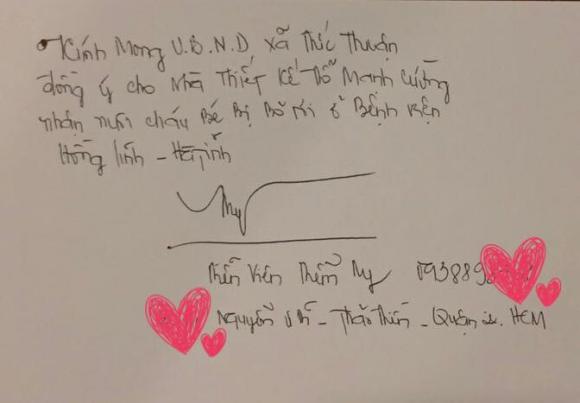 Kính Mong U.B.N.D xã Thức Thuận
đồng ý cho Nhà Thiết Kế Đỗ Mạnh Cường
nhận nuôi cháu Bé Bị Bỏ rơi ở Bệnh viện
Hồng lĩnh - Hà Tĩnh
My
093889
Nguyễn - Thảo Điền - Quận HCM